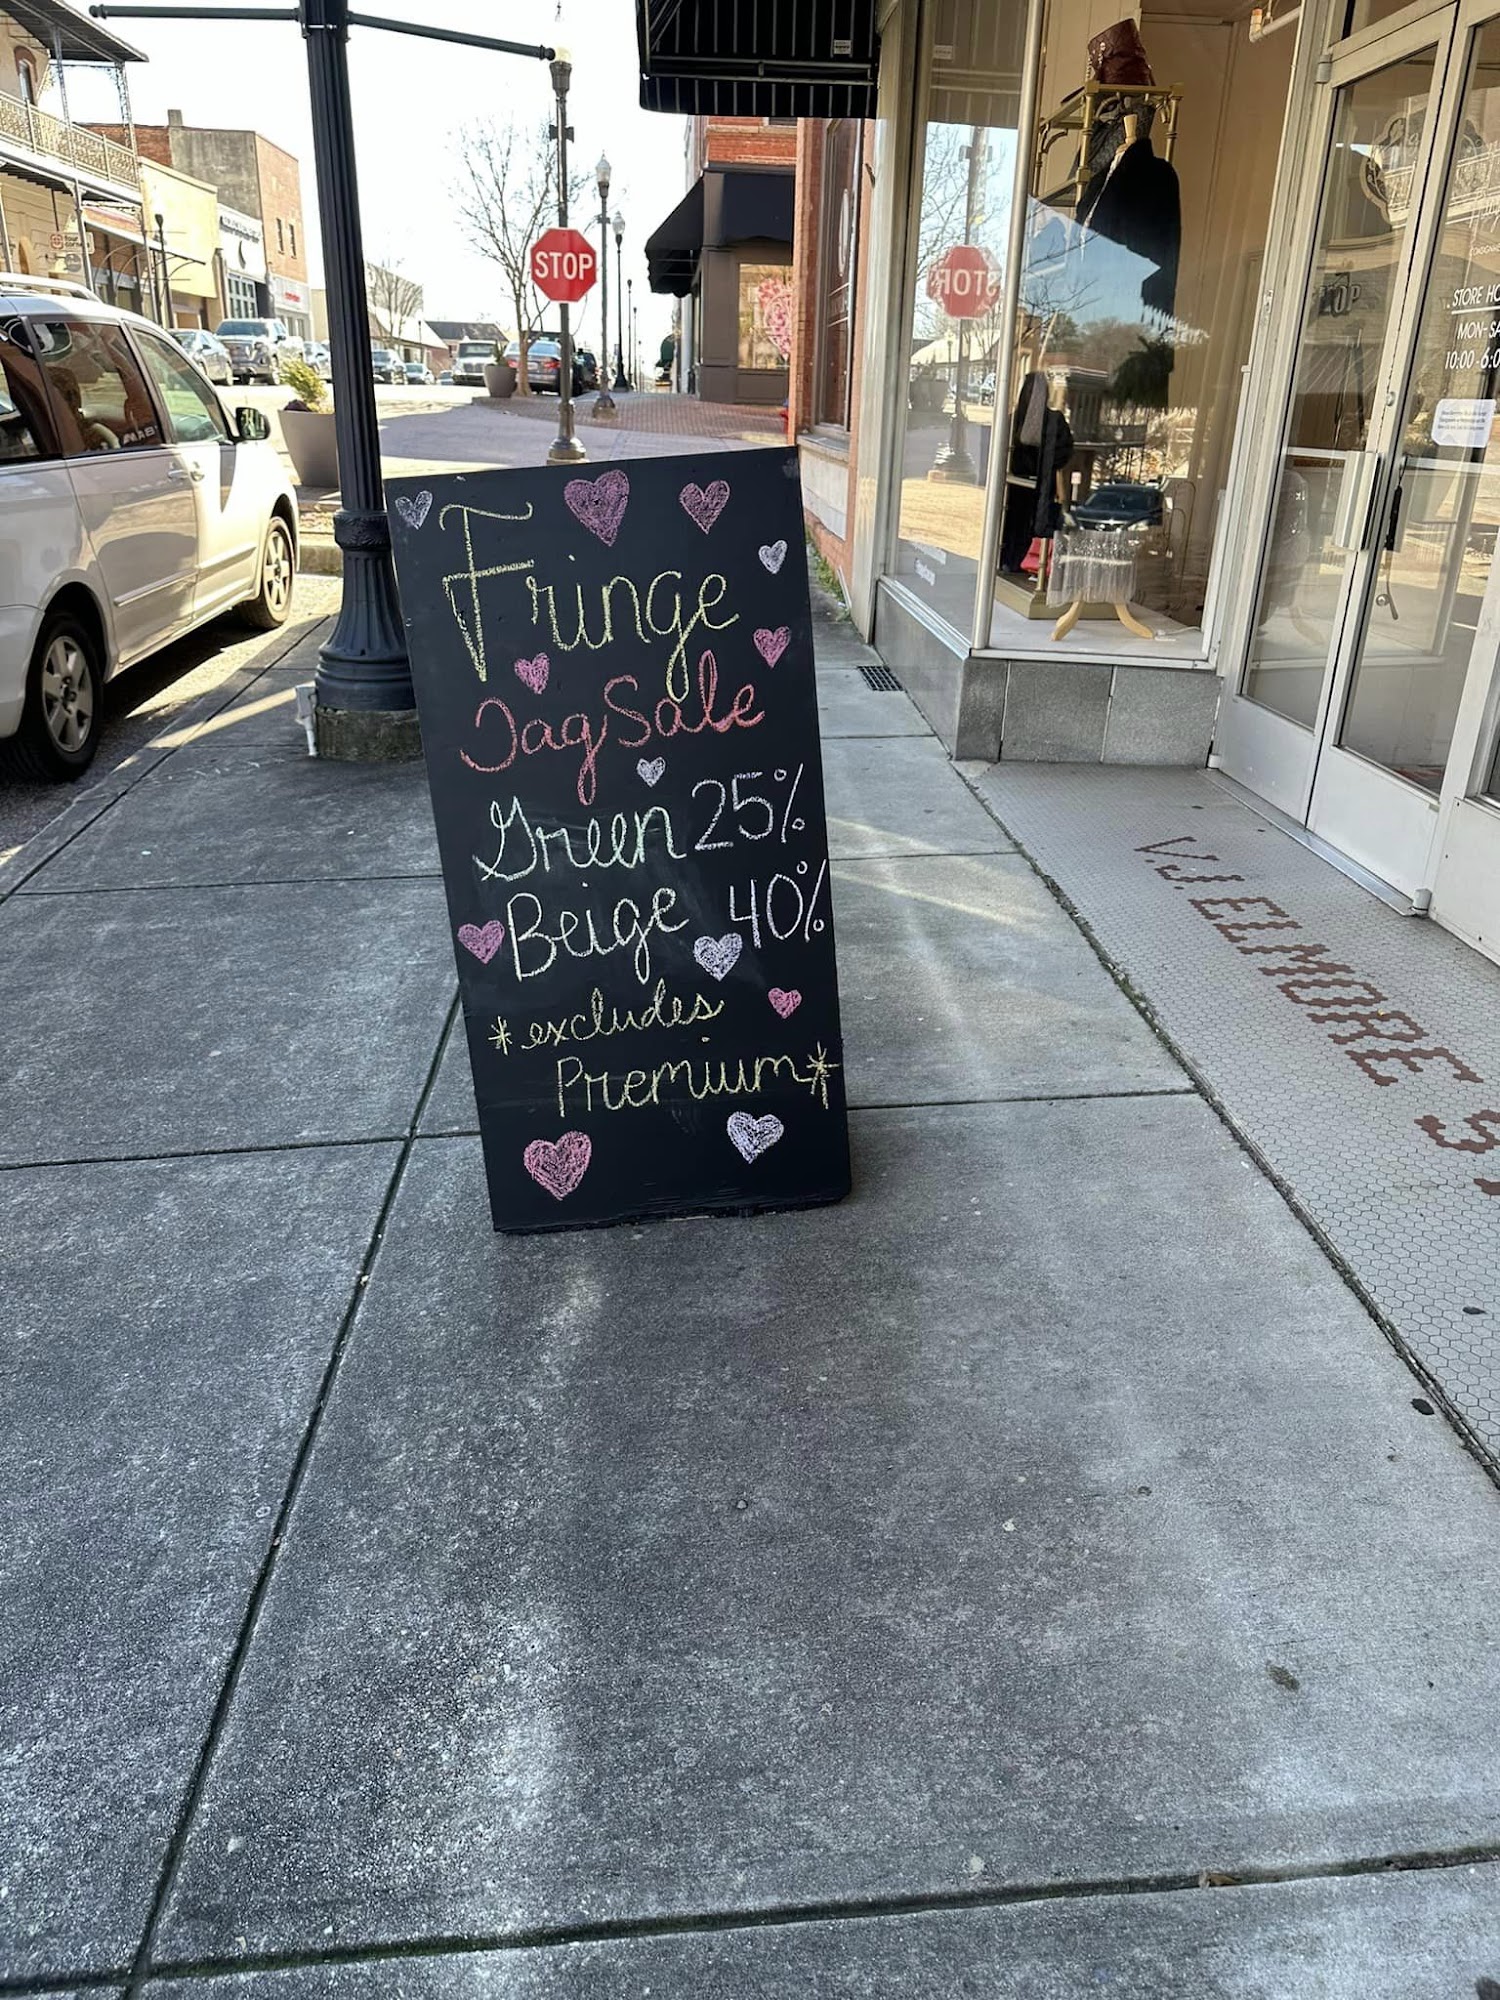 STOP
Fringe
Tag Sale
Green 25%
Beige 40%
*excludes
Premium*
STORE HO
MON-SA
10:00-6:0
V.J. ELMORE 5